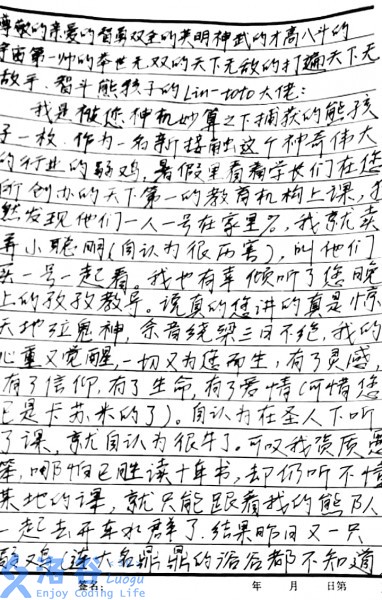 尊敬的亲爱的智勇双全的英明神武的才高八斗的
宇宙第一帅的举世无双的天下无敌的打遍天下无
敌手、智斗熊孩子的Lin-toto大佬：
我是被您神机妙算之下捕获的熊孩
子一枚。作为一名新接触这个神奇伟大
的行业的弱鸡，暑假里看着学长们在您
所创办的天下第一的教育机构上课，
然发现他们一人一号在家里，我就卖
弄小聪明（自认为很厉害），叫他们
买一号一起看。我也有幸倾听了您晚
上的孜孜教导。说真的您讲的真是惊
天地泣鬼神，余音绕梁三日不绝，我的
心重又觉醒，一切又为您而生，有了灵感，
有了信仰，有了生命，有了爱情（可惜您
已是卡苏米的了）。自认为在圣人下听
了课，就自认为很牛了。可叹我资质愚
笨，哪怕已胜读十年书，却仍听不懂
某地的课，就只能跟着我的熊队人
一起去开车水群了。结果昨日又一只
连大名鼎鼎的洛谷都不知道
洛谷
Luogu
Enjoy Coding Life
签名：　年　月　日第